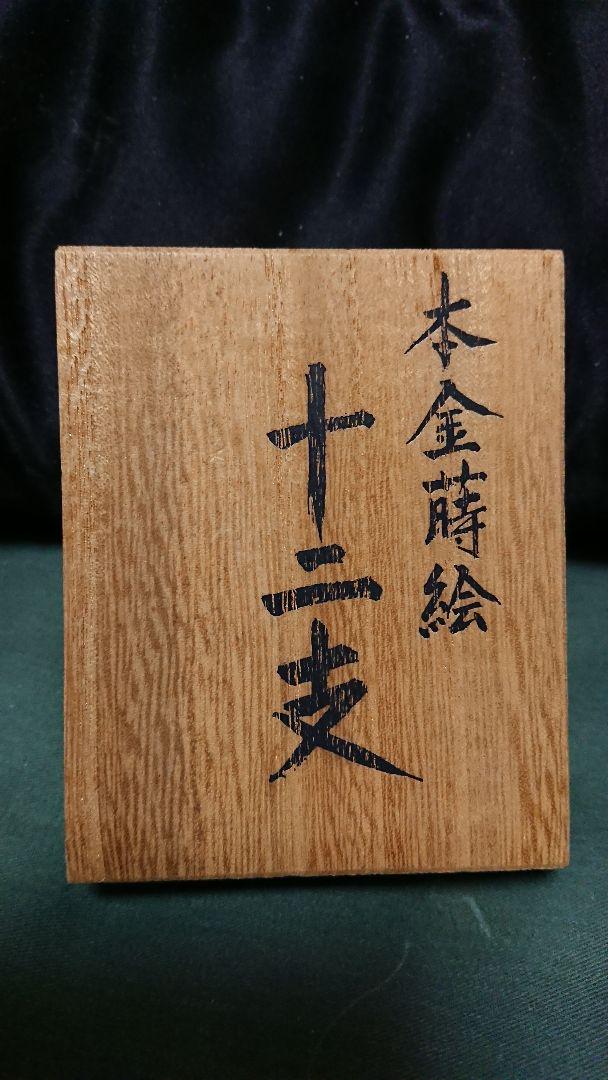 本金蒔絵
十二支